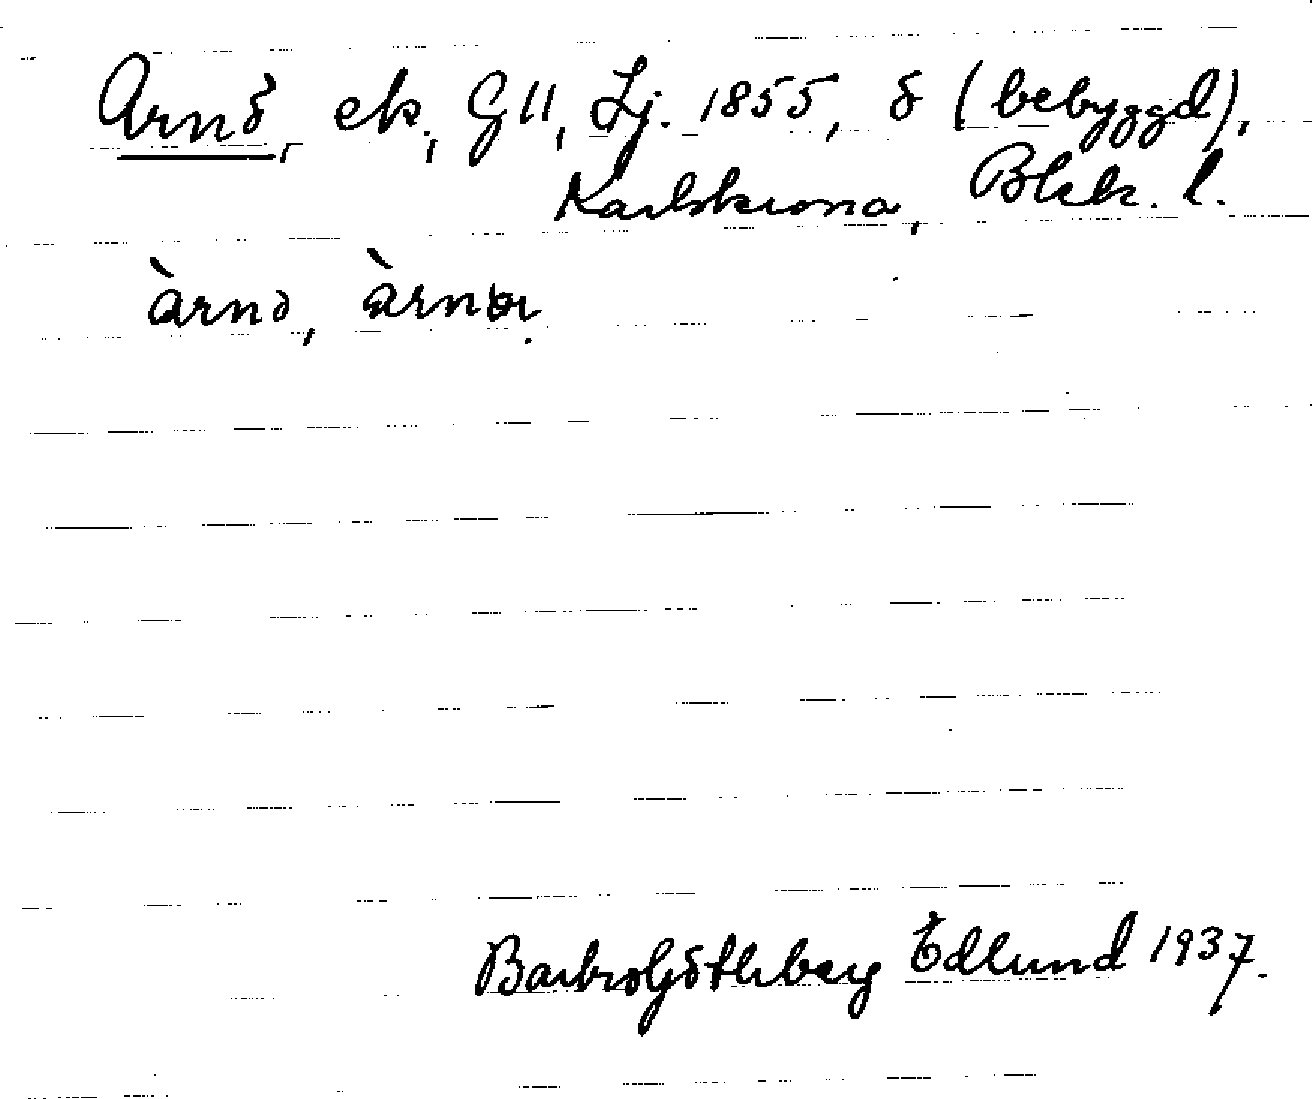 Arnö, ek., G 11, Lj. 1855, ö (bebyggd),
Karlskrona, Blek. l.
àrnə,
Barbro Götherberg Edlund 1937.